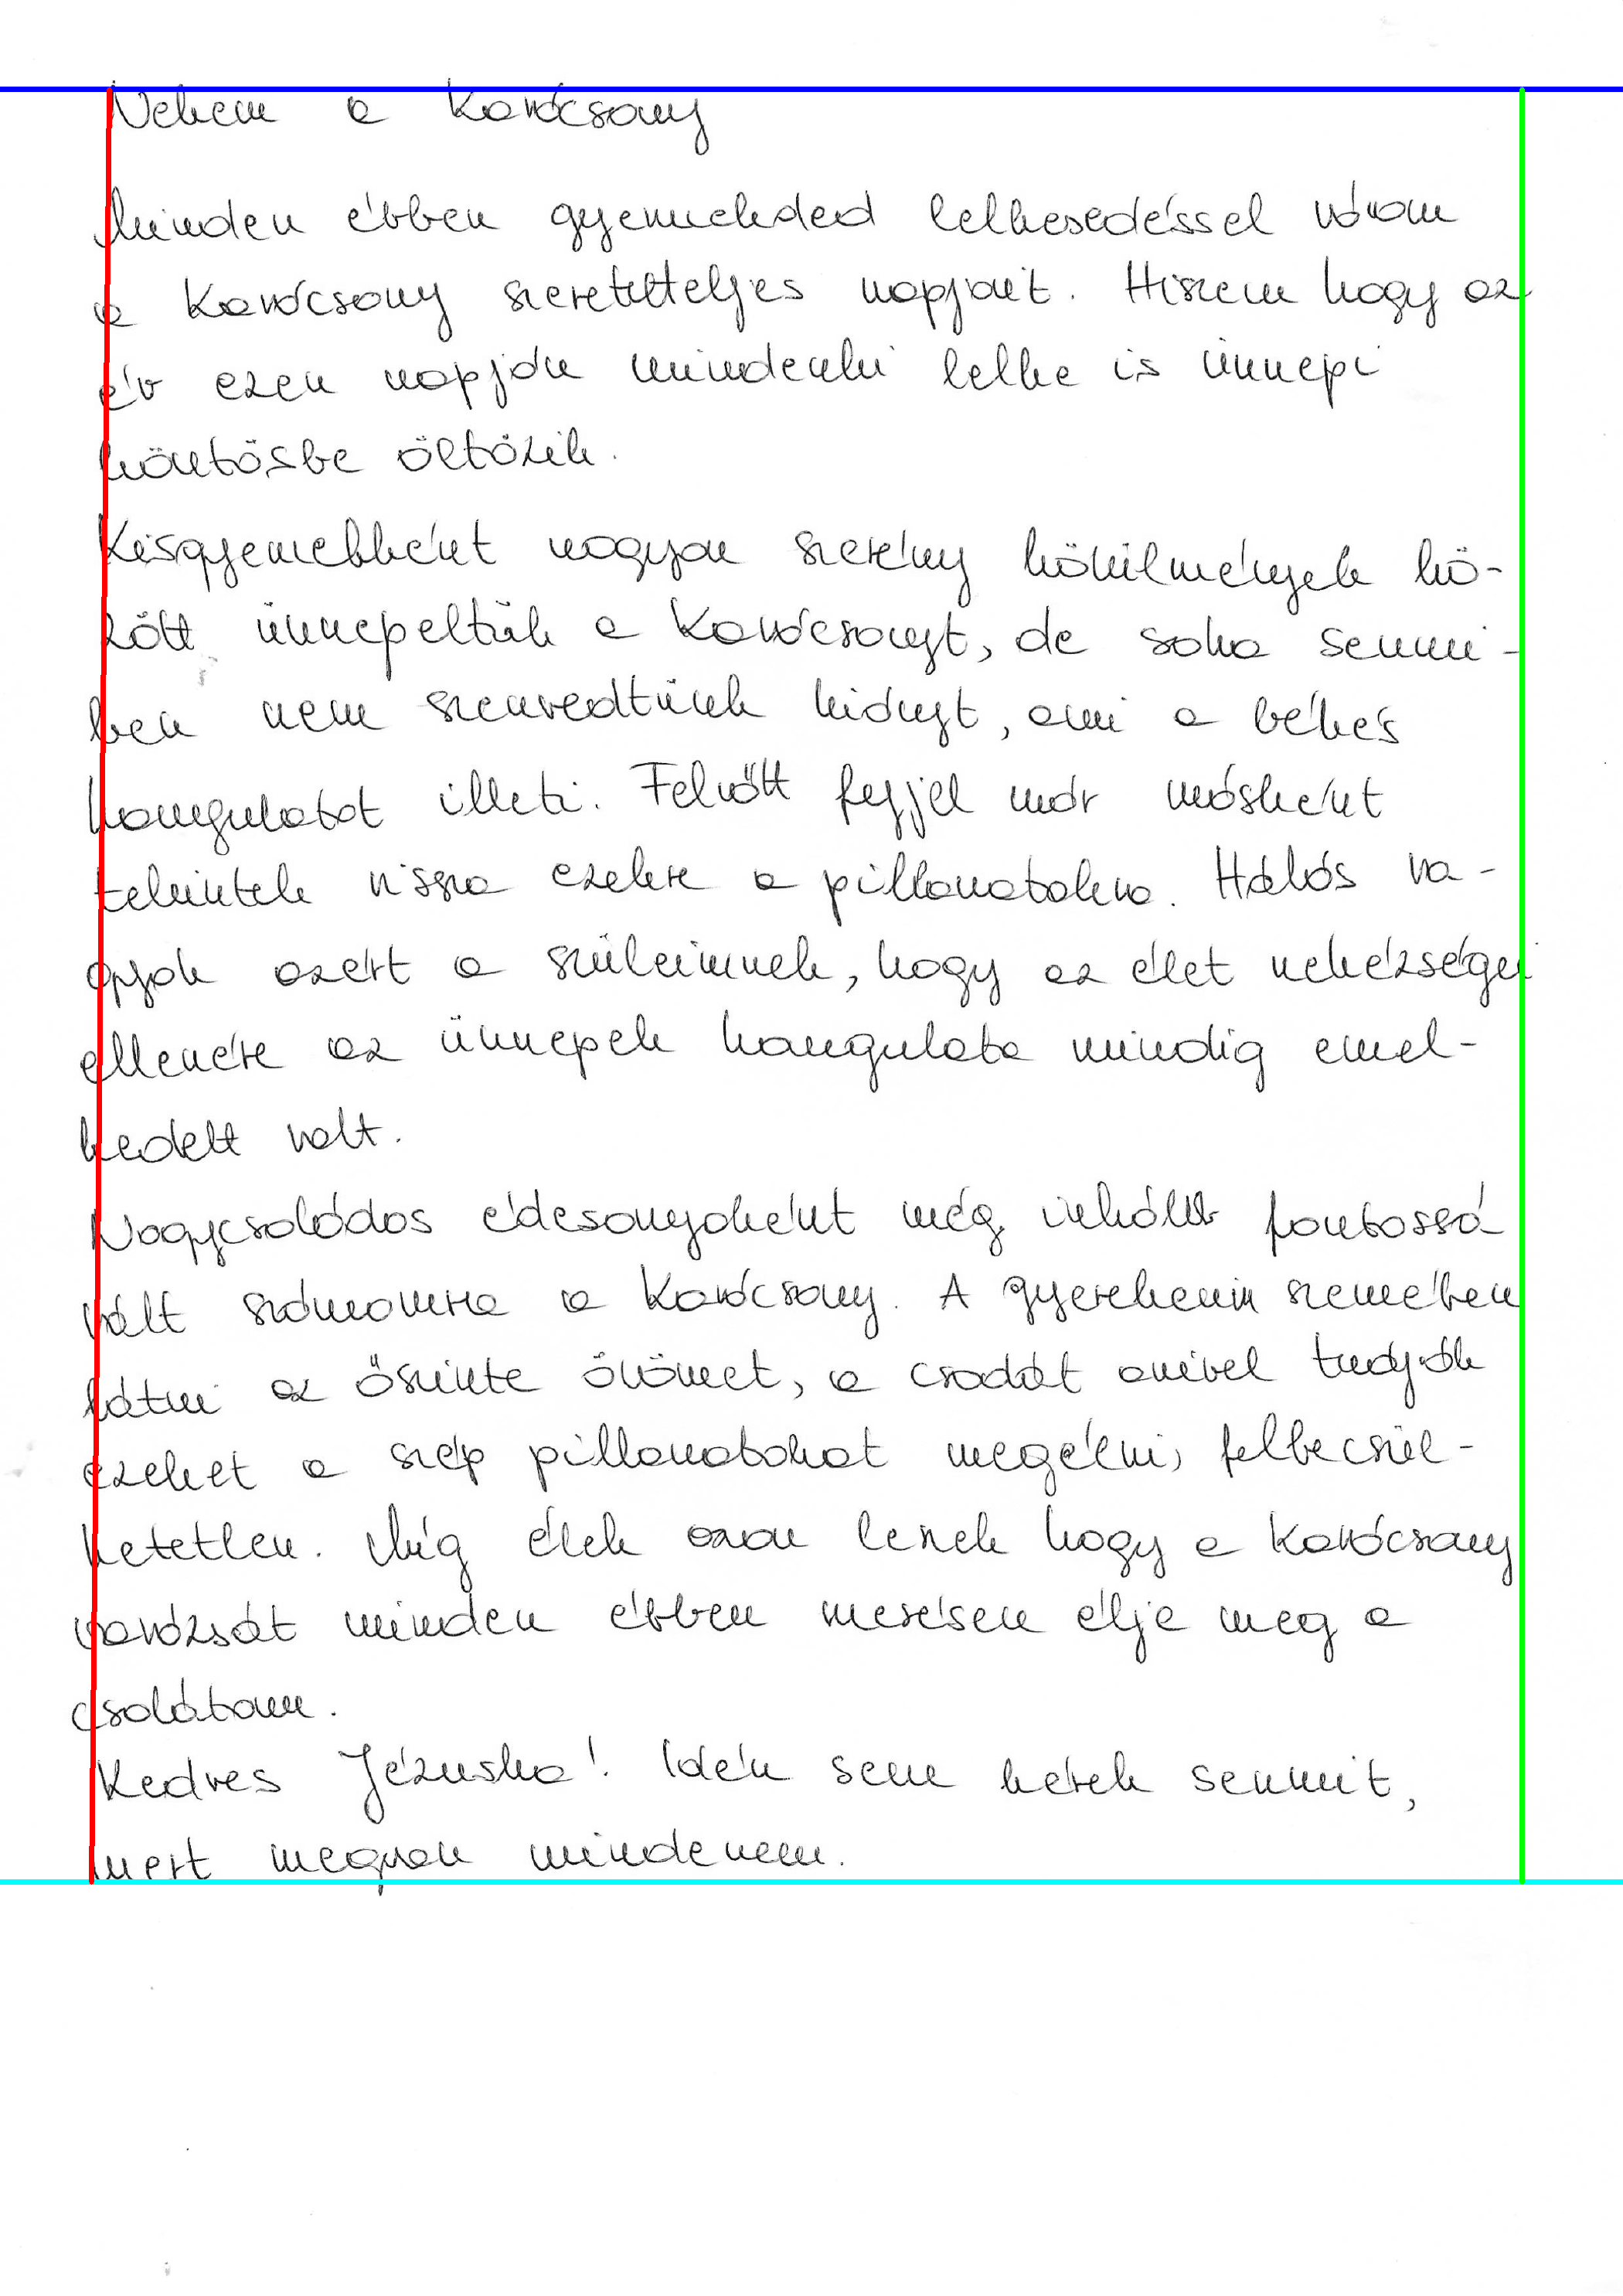 Nekem a Karácsony
Minden évben gyermekded lelkesedéssel várom
a Karácsony szeretetteljes napjait. Hiszem hogy az
év ezen napján mindenki lelke is ünnepi
köntösbe öltözik.
Kisgyermekként nagyon szerény körülmények kö-
zött ünnepeltük a Karácsonyt, de soha semmi-
ben nem szenvedtünk hiányt, ami a békés
hangulatot illeti. Felnőtt fejjel már másként
tekintek vissza ezekre a pillanatokra. Hálás va-
gyok azért a szüleimnek, hogy az élet nehézségei
ellenére az ünnepek hangulata mindig emel-
kedett volt.
Nagycsaládos édesanyaként még inkább fontossá
vált számomra a Karácsony. A gyerekeim szemében
látni az őszinte örömet, a csodát amivel tudják
ezeket a szép pillanatokat megélni, felbecsül-
hetetlen. Míg élek azon leszek hogy a Karácsony
varázsát minden évben mesésen élje meg a
családom.
Kedves Jézuska! Idén sem kérek semmit,
mert megvan mindenem.